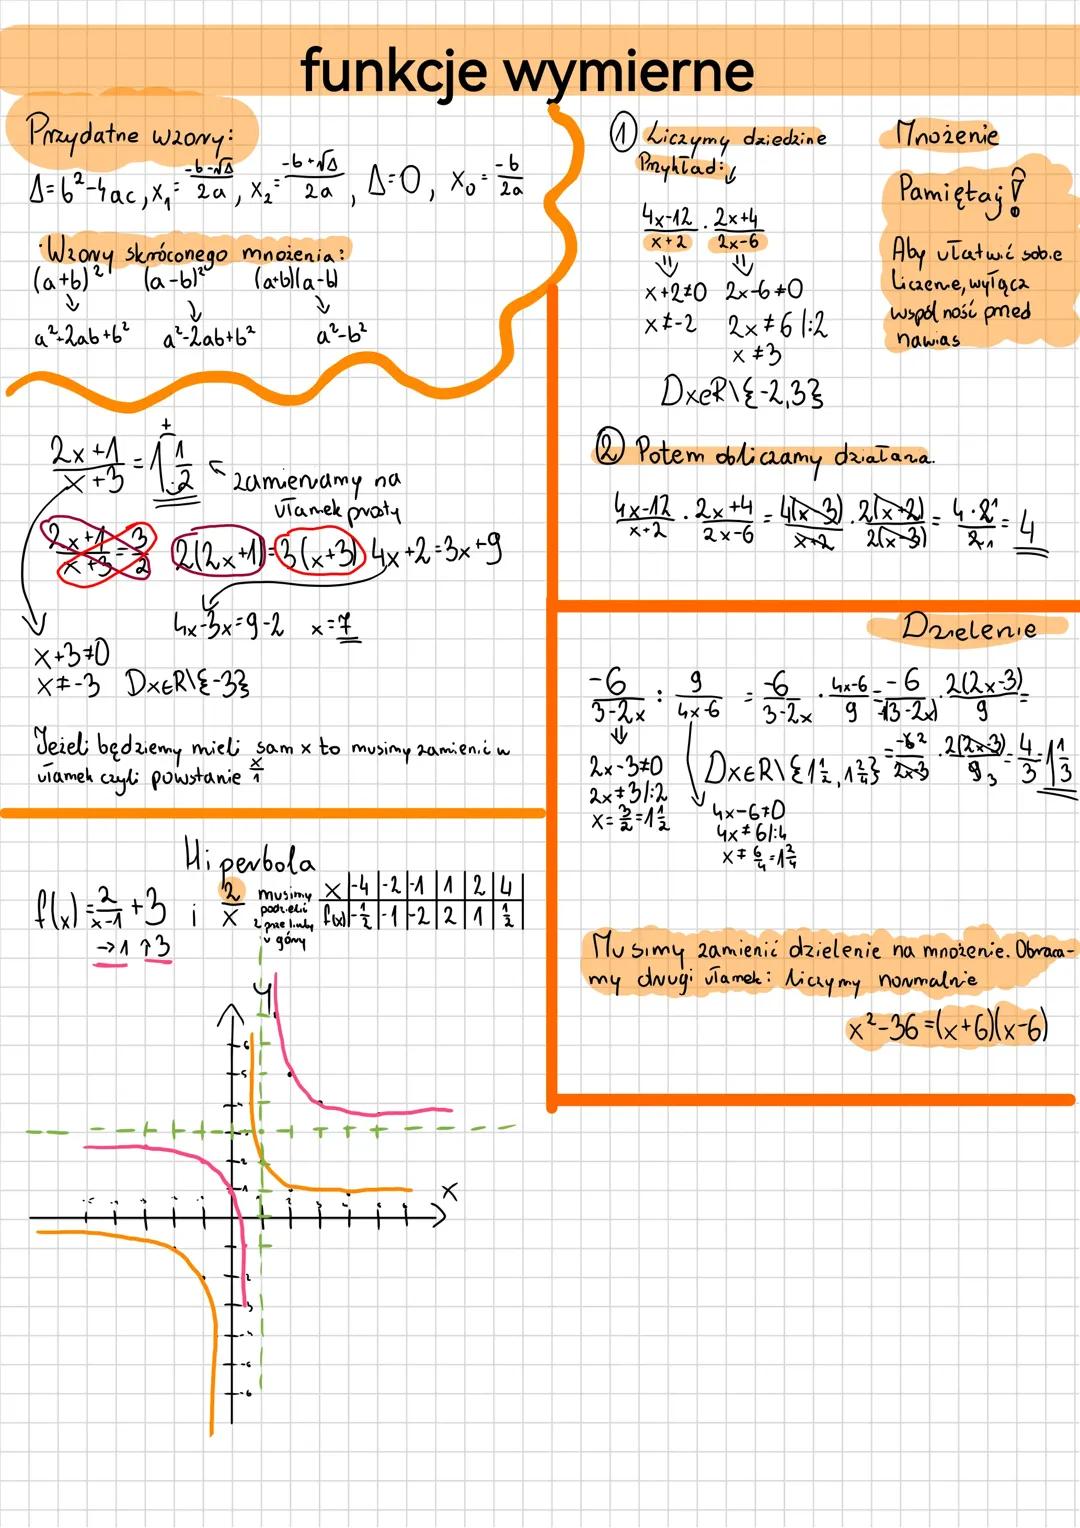 funkcje wymierne
Przydatne wzory:
Δ=b²-4ac, x₁=(-b-√Δ)/2a, x₂=(-b+√Δ)/2a, Δ=0, x₀=-b/2a
·Wzory skróconego mnożenia:
(a+b)² (a-b)² (a+b)(a-b)
↓ ↓ ↓
a²+2ab+b² a²-2ab+b² a²-b²
(2x+1)/(x+3)=1 1/2 ← zamieniamy na
ułamek prosty
(2x+1)/(x+3)=3/2 2(2x+1)=3(x+3) 4x+2=3x+9
4x-3x=9-2 x=7
x+3≠0
x≠-3 DxεR\{-3}
Jeżeli będziemy mieli sam x to musimy zamienić w
ułamek czyli powstanie x/1
Hiperbola
f(x)=2/(x-1)+3 i 2/x
→1 ↑3
musimy
podzielić
2 przez liczby
u góry
x|-4|-2|-1|1|2|4|
f(x)|-1/2|-1|-2|2|1|1/2|
y
x
① Liczymy dziedzine
Przykład: ↓
(4x-12)/(x+2) · (2x+4)/(2x-6)
⇓ ⇓
x+2≠0 2x-6≠0
x≠-2 2x≠6 |:2
x≠3
DxεR\{-2,3}
Mnożenie
Pamiętaj!
Aby ułatwić sobie
liczenie, wyłącz
wspólność przed
nawias
② Potem obliczamy działana.
(4x-12)/(x+2) · (2x+4)/(2x-6) = 4(x-3)/(x+2) · 2(x+2)/2(x-3) = 4·2¹/2₁ = 4
Dzielenie
-6/(3-2x) : 9/(4x-6) = -6/(3-2x) · (4x-6)/9 = -6/-(3-2x) · 2(2x-3)/9 =
= -6²/(2x-3) · 2(2x-3)/9₃ = 4/3 = 1 1/3
⇓
2x-3≠0
2x≠3|:2
x=3/2=1 1/2
DxεR\{1 1/2, 1 2/4}
4x-6≠0
4x≠6|:4
x≠6/4=1 2/4
Musimy zamienić dzielenie na mnożenie. Obraca-
my drugi ułamek i liczymy normalnie
x²-36=(x+6)(x-6)